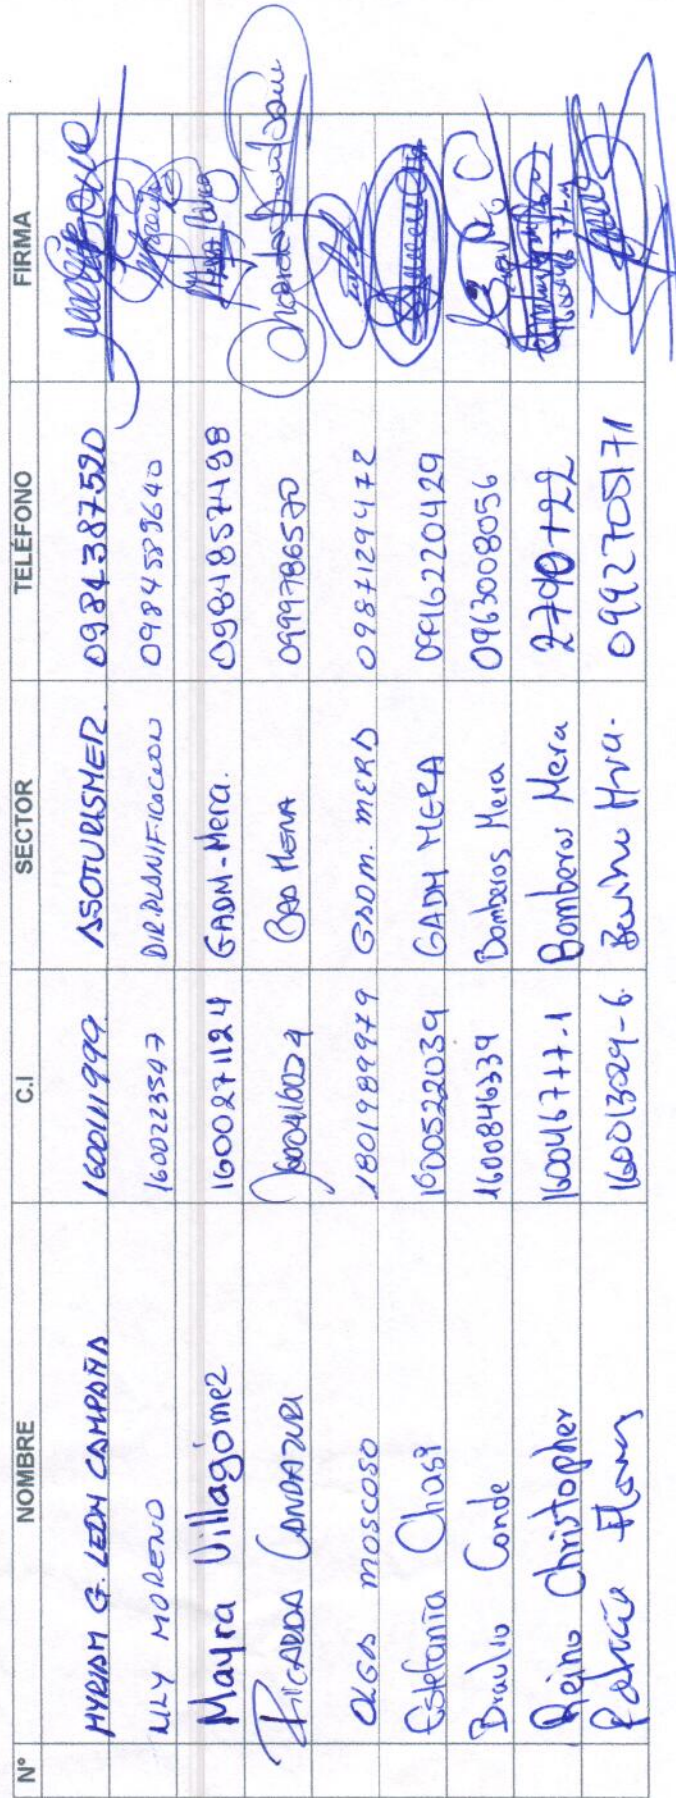 N° NOMBRE C.I SECTOR TELÉFONO FIRMA
MYRIAM G. LEÓN CAMPAÑA 1600111999. ASOTURISMER. 0984387520
LILY MORENO 1600223547 DIR. PLANIFICACION 0984589640
Mayra Villagómez 1600271124 GADM-Mera. 0984857498
RICARDO 1600416024 MERA 0999786570
OLGA MOSCOSO 1801989979 GADM. MERA 0987129472
Estefanía Chasi 1600522039 GADM MERA 0996220429
Braulio Conde 1600846339 Bomberos Mera 0963008056
Reino Christopher 160046777-1 Bomberos Mera 2790122
Patricia Flores 160013029-6. Barrio 0992705171